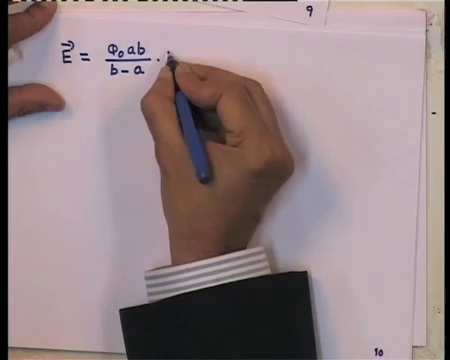 9
E⃗ = Φ₀ab / (b − a) ·
10